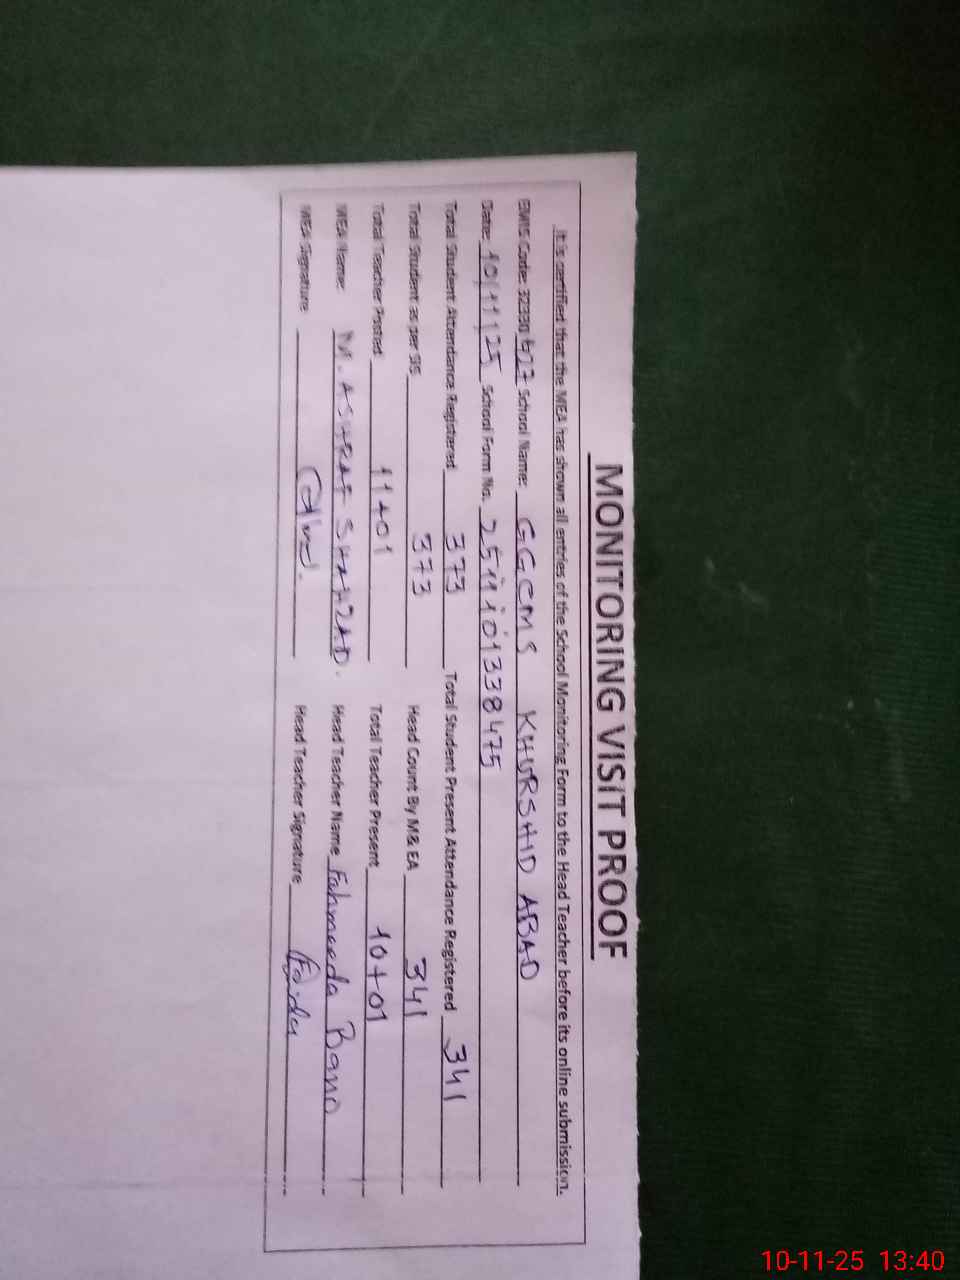 MONITORING VISIT PROOF
It is certified that the MEA has shown all entries of the School Monitoring Form to the Head Teacher before its online submission.
EMIS Code: 32330627 School Name: GGCMS KHURSHID ABAD
Date: 10/11/25 School Form No. 2511101338475
Total Student Attendance Registered 373 Total Student Present Attendance Registered 341
Total Student as per SIS 373 Head Count By M& EA 341
Total Teacher Posted 11+01 Total Teacher Present 10+01
MEA Name: M. ASHRAF SHAHZAD. Head Teacher Name Fahmeeda Bano
MEA Signature Head Teacher Signature
10-11-25 13:40